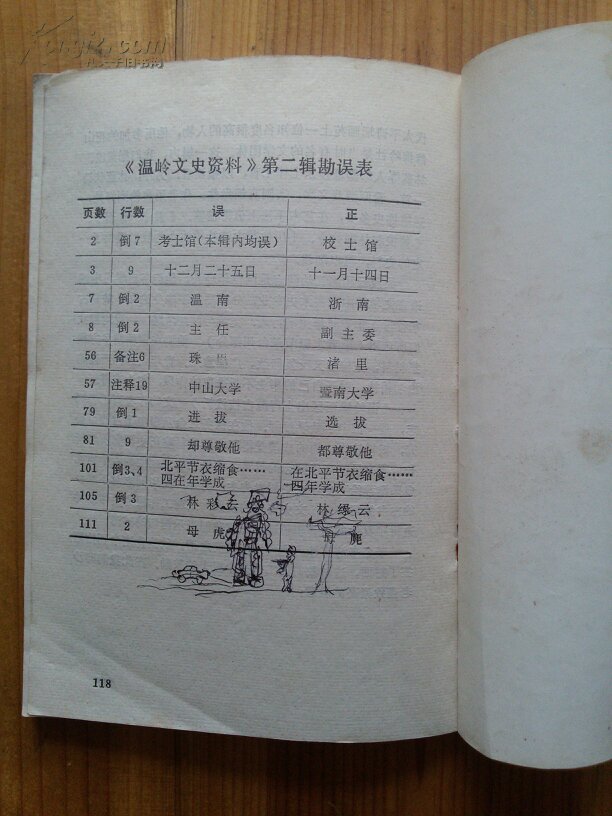 《温岭文史资料》第二辑勘误表
页数 行数 误 正
2 倒7 考士馆(本辑内均误) 校士馆
3 9 十二月二十五日 十一月十四日
7 倒2 温南 浙南
8 倒2 主任 副主委
56 备注6 珠 渚里
57 注释19 中山大学 暨南大学
79 倒1 进拔 选拔
81 9 却尊敬他 都尊敬他
101 倒3、4 北平节衣缩食……四在年学成 在北平节衣缩食……四年学成
105 倒3 林彩云 林缘云
111 2 母虎 母
118